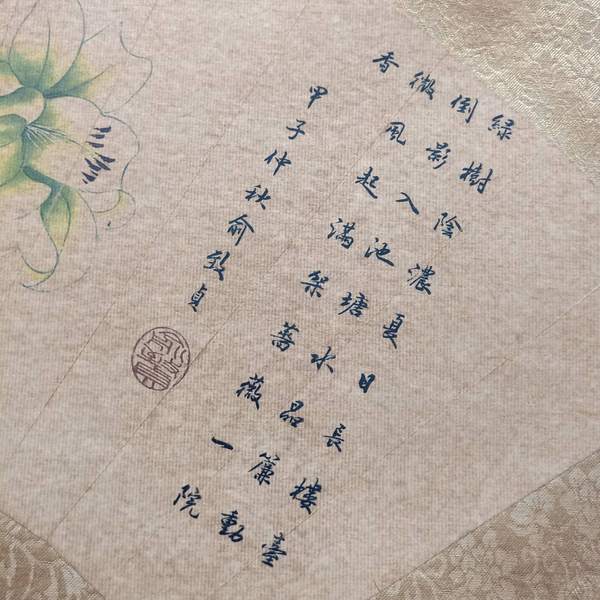 綠樹陰濃夏日長樓臺
倒影入池塘水晶簾動
微風起滿架薔薇一院
香
甲子仲秋俞致貞